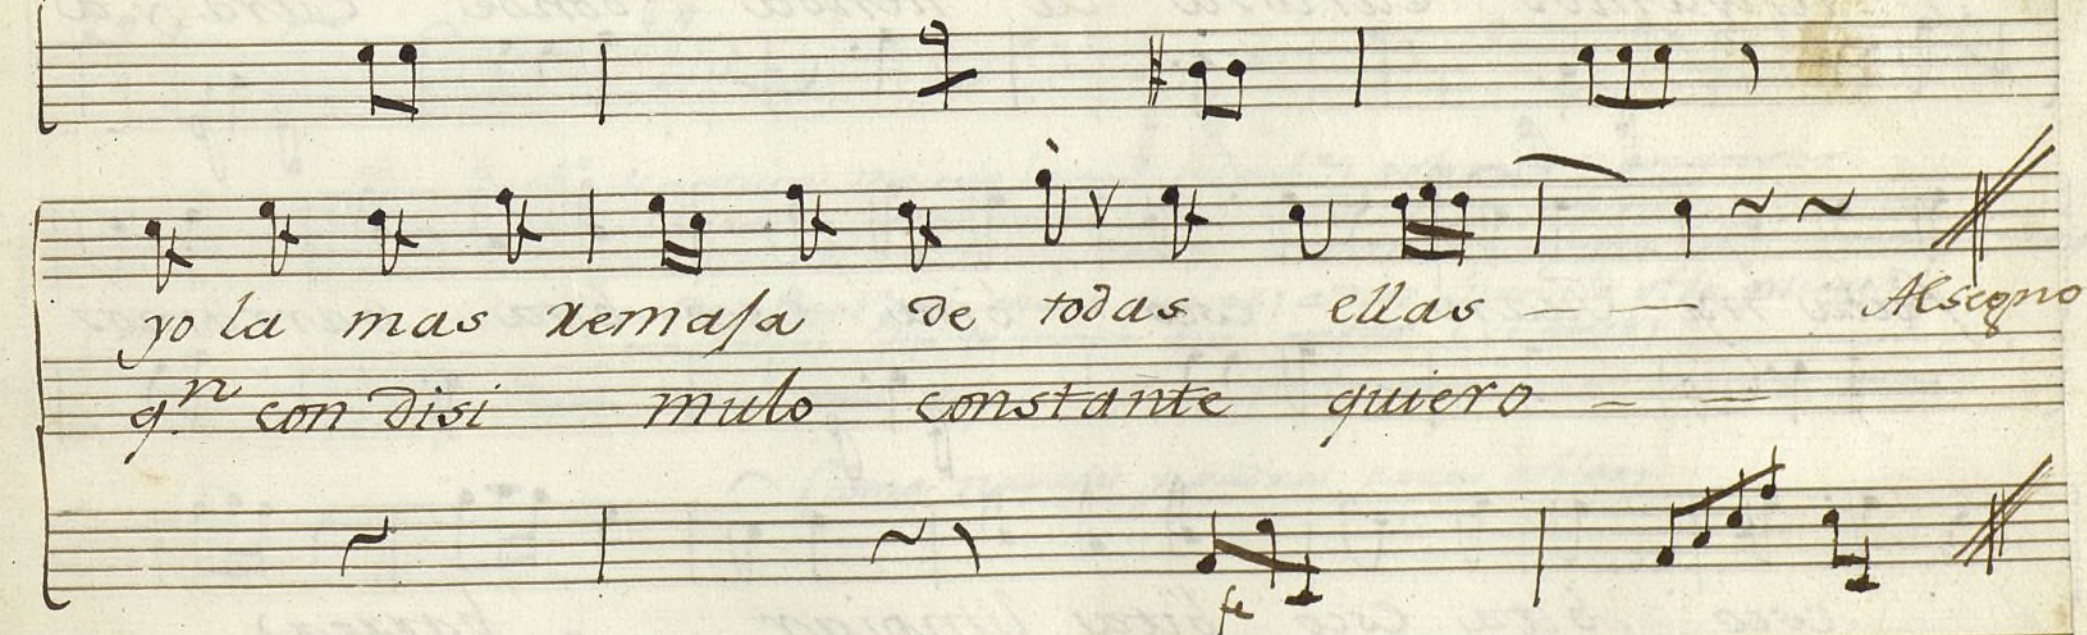 yo la mas remasa de todas ellas — — Al segno
q.n con disi mulo constante quiero — —
fe